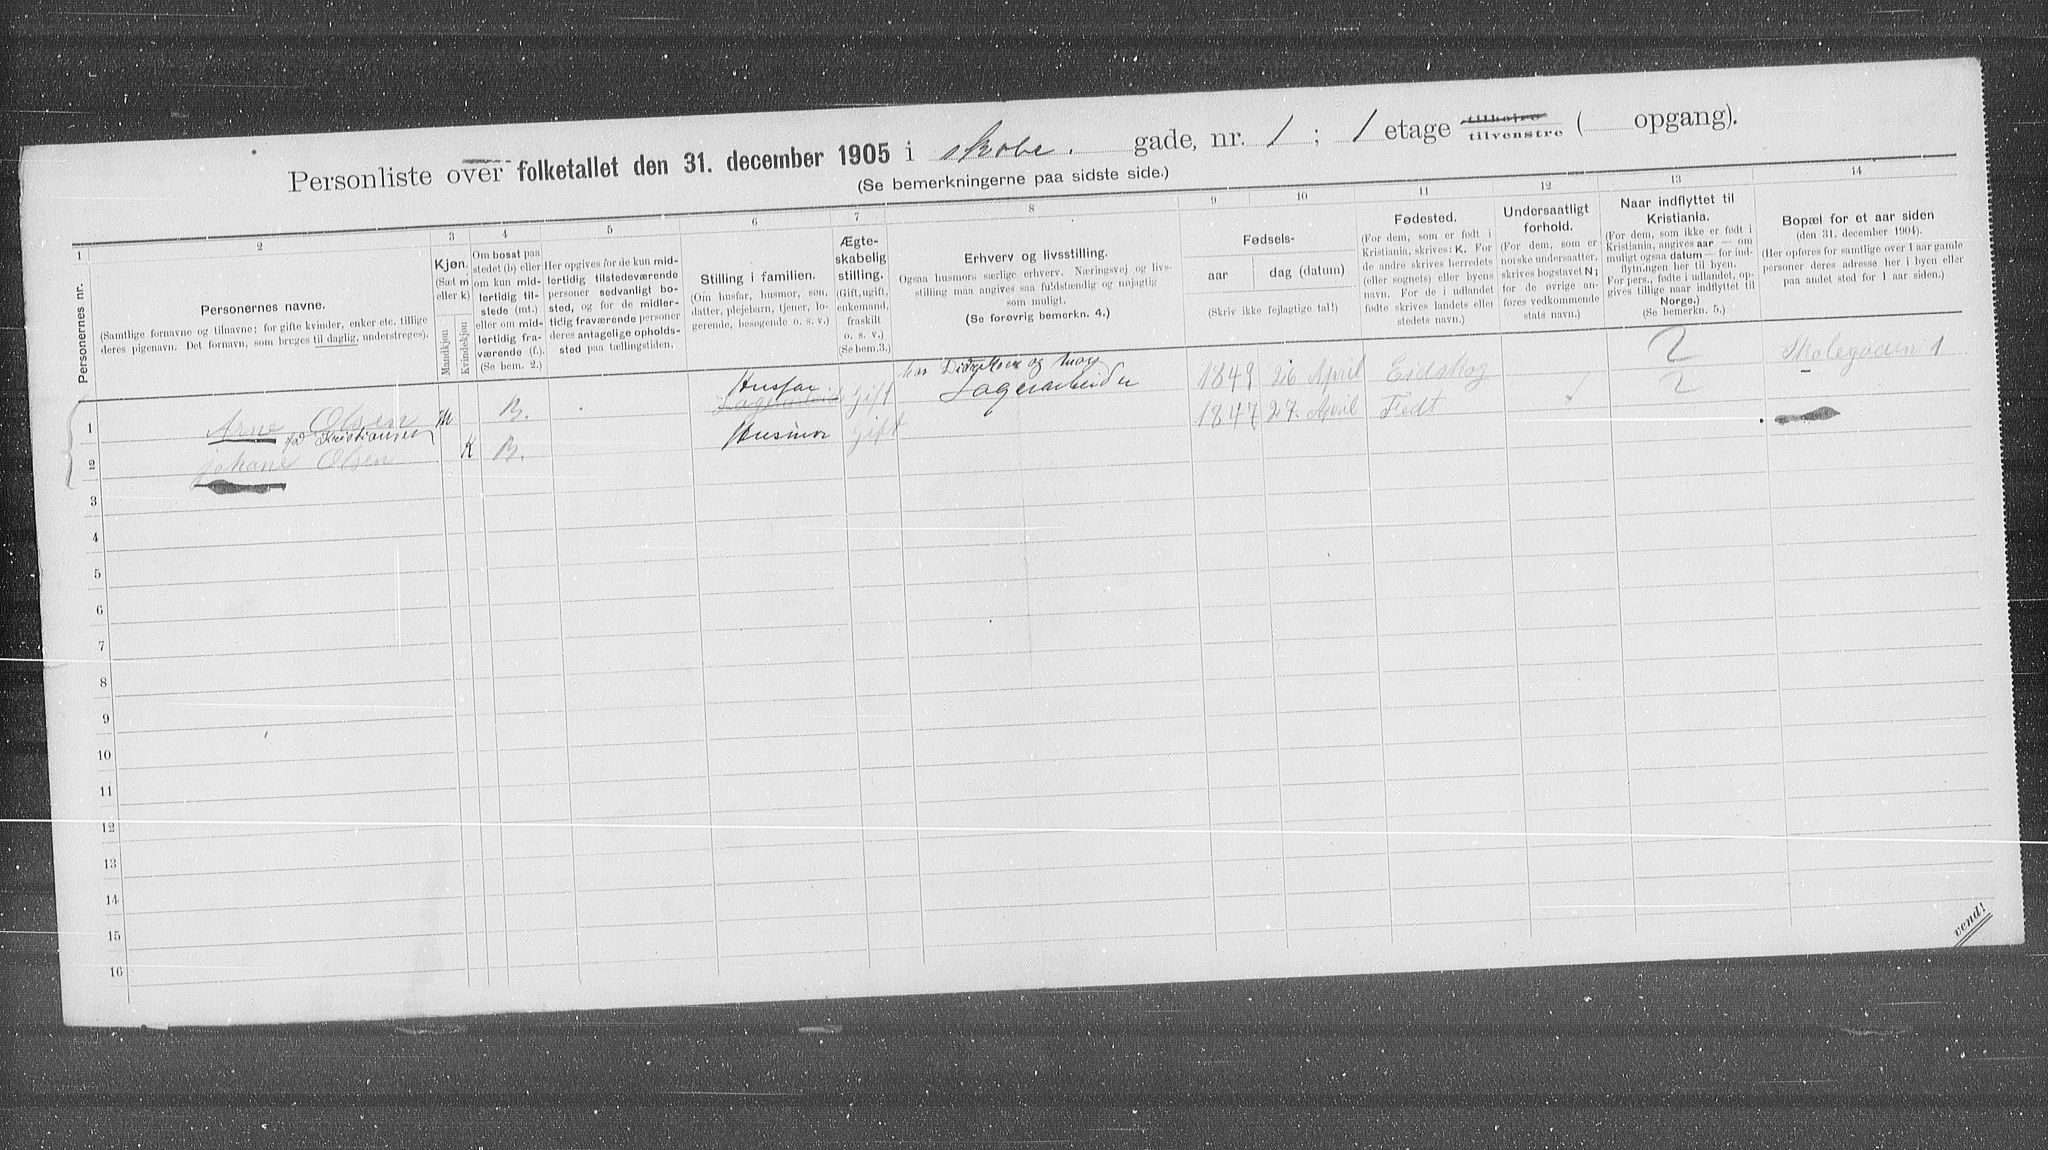 Personliste over folketallet den 31. december 1905 i skobe. gade, nr. 1; 1 etage tilhøjre tilvenstre ( opgang).
(Se bemerkningerne paa sidste side.)
1 2 3 4 5 6 7 8 9 10 11 12 13 14
Personernes nr.
Personernes navne.
(Samtlige fornavne og tilnavne; for gifte kvinder, enker etc. tillige
deres pigenavn. Det fornavn, som bruges til daglig, understreges).
Kjøn.
(Sæt m
eller k)
Mandkjøn
Kvindekjøn
Om bosat paa
stedet (b) eller
om kun mid-
lertidig til-
stede (mt.)
eller om mid-
lertidig fra-
værende (f.).
(Se bem. 2.)
Her opgives for de kun mid-
lertidig tilstedeværende
personer sedvanligt bo-
sted, og for de midler-
tidig fraværende personer
deres antagelige opholds-
sted paa tællingstiden.
Stilling i familien.
(Om husfar, husmor, søn,
datter, plejebarn, tjener, lo-
gerende, besøgende o. s. v.)
Ægte-
skabelig
stilling.
(Gift, ugift,
enkemand,
fraskilt
o. s. v.)
(Se bem.3.)
Erhverv og livsstilling.
Ogsaa husmors særlige erhverv. Næringsvej og livs-
stilling maa angives saa fuldstændig og nøjagtig
som muligt.
(Se forøvrig bemerkn. 4.)
Fødsels-
aar dag (datum)
(Skriv ikke fejlagtige tal!)
Fødested.
(For dem, som er født i
Kristiania, skrives: K. For
de andre skrives herredets
(eller sognets) eller byens
navn. For de i udlandet
fødte skrives landets eller
stedets navn.)
Undersaatligt
forhold.
(For dem, som er
norske undersaatter,
skrives bogstavet N;
for de øvrige an-
føres vedkommende
stats navn.)
Naar indflyttet til
Kristiania.
(For dem, som ikke er født i
Kristiania, angives aar — om
muligt ogsaa datum — for ind-
flytningen her til byen.
For pers., fødte i udlandet, op-
gives tillige naar indflyttet til
Norge.)
(Se bemerkn. 5.)
Bopæl for et aar siden
(den 31. december 1904).
(Her opføres for samtlige over 1 aar gamle
personer deres adresse her i byen eller
paa andet sted for 1 aar siden.)
1 Arne Olsen m B. Husfar gift Lagerarbeider 1849 26 April Eidskog 2 Skolegaden 1
fød Kristiansen
2 Johane Olsen K B. Husmor gift 1847 27. April Fedt 2
3
4
5
6
7
8
9
10
11
12
13
14
15
16
vend!